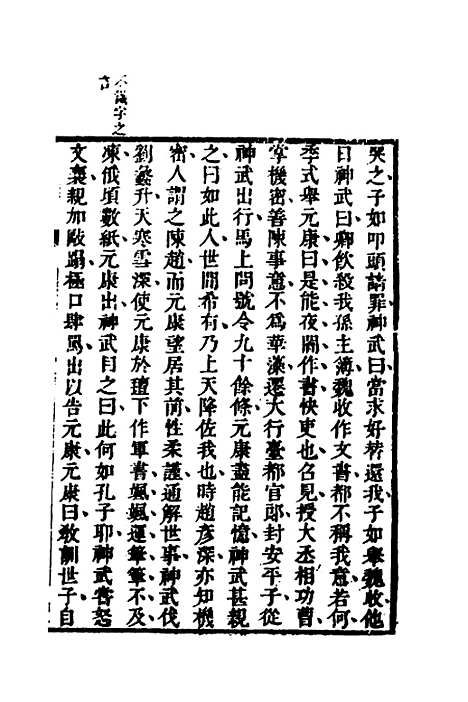 不識字之
言
哭之子如叩頭請罪神武曰當求好替還我子如舉魏收他
日神武曰卿飲殺我孫主簿魏收作文書都不稱我意若何
季式舉元康曰是能夜闇作書快吏也召見授大丞相功曹
掌機密善陳事意不爲華藻遷大行臺都官郎封安平子從
神武出行馬上問號令九十餘條元康盡能記憶神武甚親
之曰如此人世間希有乃上天降佐我也時趙彥深亦知機
密人謂之陳趙而元康望居其前性柔謹通解世事神武伐
劉蠡升天寒雪深使元康於氊下作軍書颯颯運筆筆不及
凍俄頃數紙元康出神武目之曰此何如孔子耶神武嘗怒
文襄親加毆蹋極口肆罵出以告元康元康曰敎訓世子自